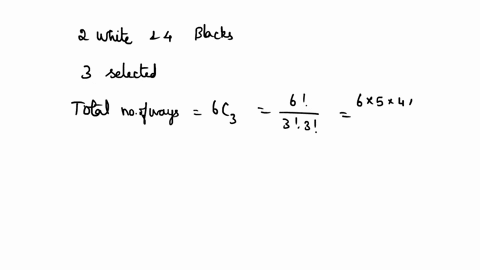 2 white & 4 Blacks
3 selected
Total no.of ways = 6C3 = 6! / 3!.3! = 6 x 5 x 4